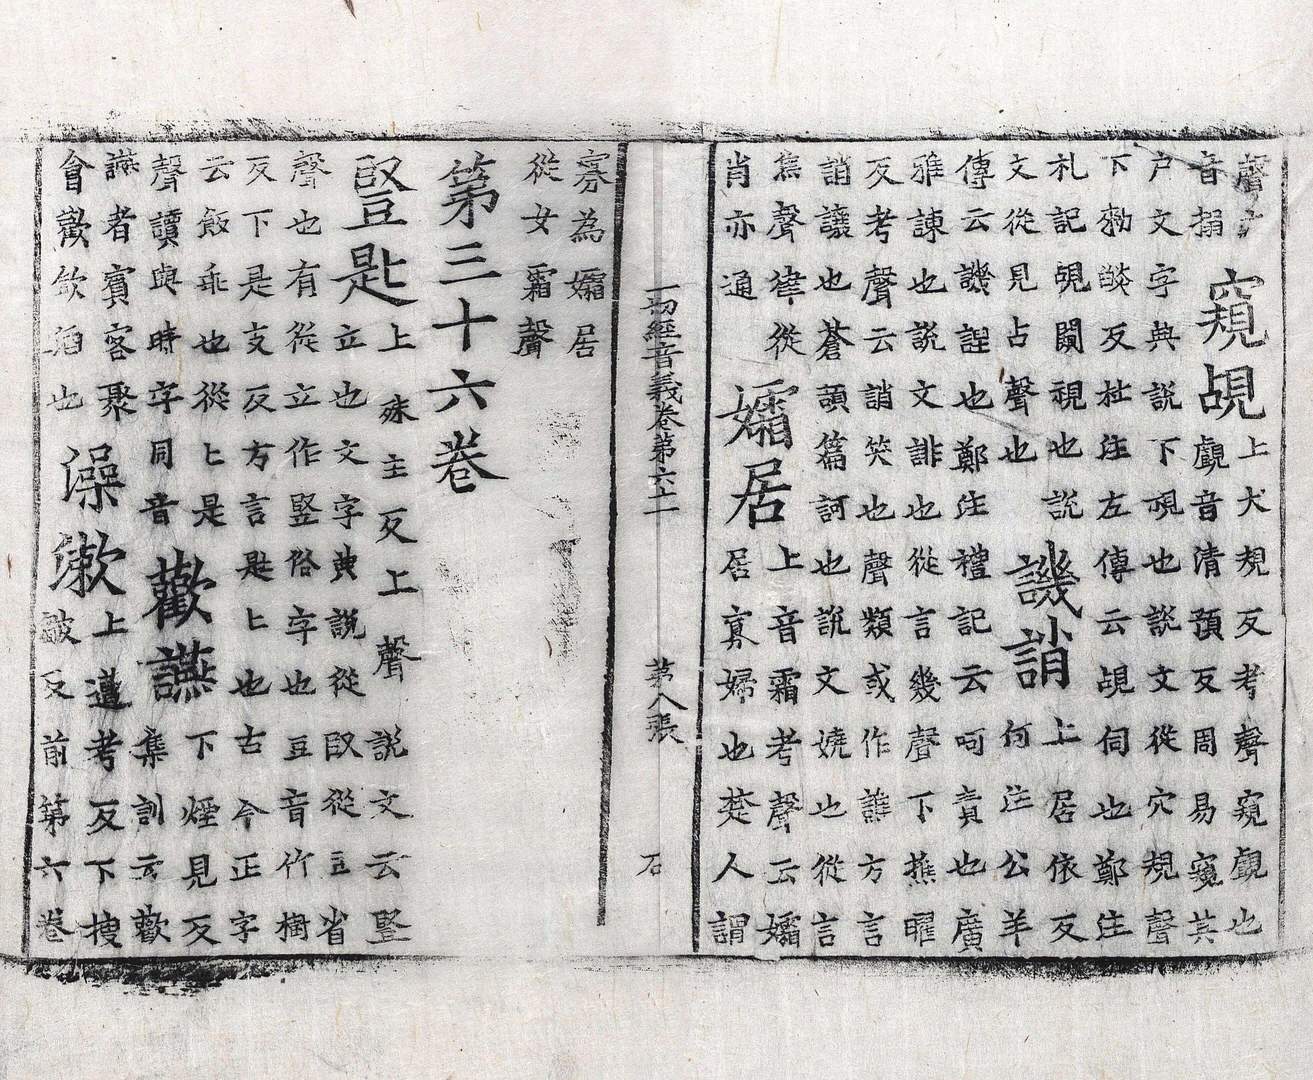 聲才
音捐
窺覘
上犬規反考聲窺覰也
覰音清預反周易窺其
戶文字典說下視也說文從穴規聲
下勑燄反杜注左傳云覘伺也鄭注
礼記覘闚視也說
文從見占聲也
譏誚
上居依反
何注公羊
傳云譏誙也鄭注禮記云呵責也廣
雅諫也說文誹也從言幾聲下樵曜
反考聲云誚笑也聲類或作譙方言
誚讓也蒼頡篇訶也說文嬈也從言
焦聲律從
肖亦通
孀居
上音霜考聲云孀
居寡婦也楚人謂
一切經音義卷第六十一 第八張 石
寡為孀居
從女霜聲
第三十六卷
豎匙
上殊主反上聲說文云豎
立也文字典說從臤從豆省
聲也有從立作竪俗字也豆音竹樹
反下是支反方言匙匕也古今正字
云飯乖也從匕是
聲讀與時字同音
歡讌
下煙見反
集訓云歡
讌者賓客聚
會歡飲酒也
澡漱
上遭考反下搜
皺反前第六卷